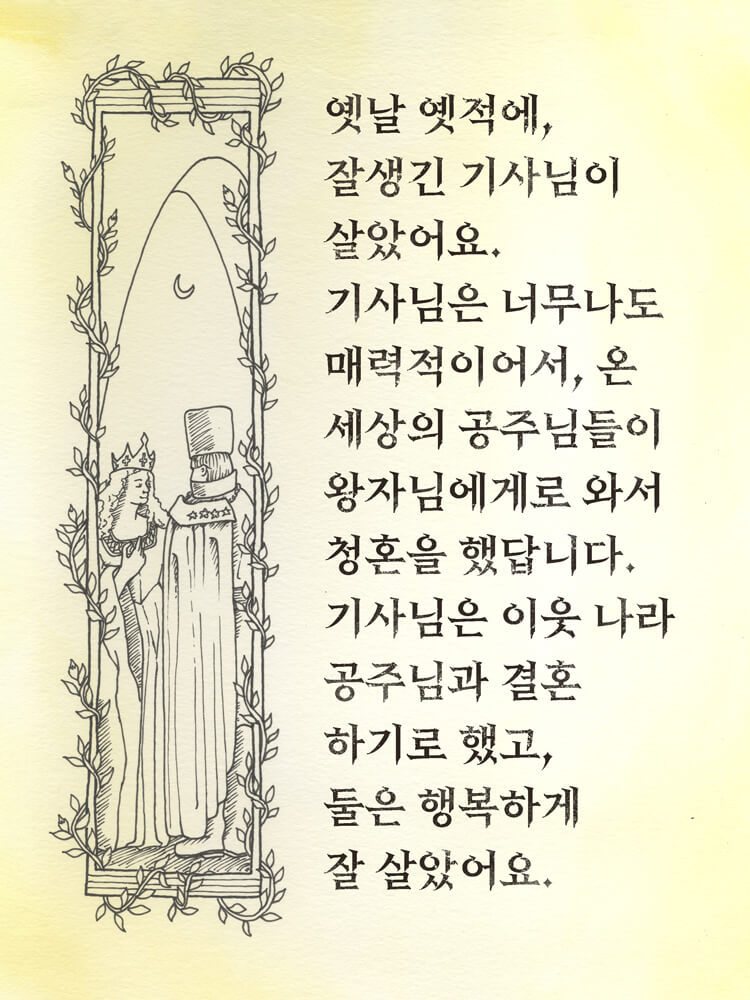 옛날 옛적에,
잘생긴 기사님이
살았어요.
기사님은 너무나도
매력적이어서, 온
세상의 공주님들이
왕자님에게로 와서
청혼을 했답니다.
기사님은 이웃 나라
공주님과 결혼
하기로 했고,
둘은 행복하게
잘 살았어요.